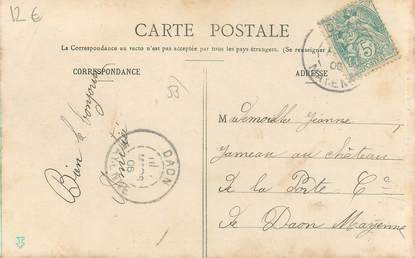 12 €
CARTE POSTALE
La Correspondance au recto n'est pas acceptée par tous les pays étrangers. (Se renseigner à
CORRESPONDANCE
ADRESSE
53
Bien le bonjour
DAON
MAYENNE
08
5
Mademoiselle Jeanne
Jameau au château
de la Porte Cne
de Daon Mayenne
53